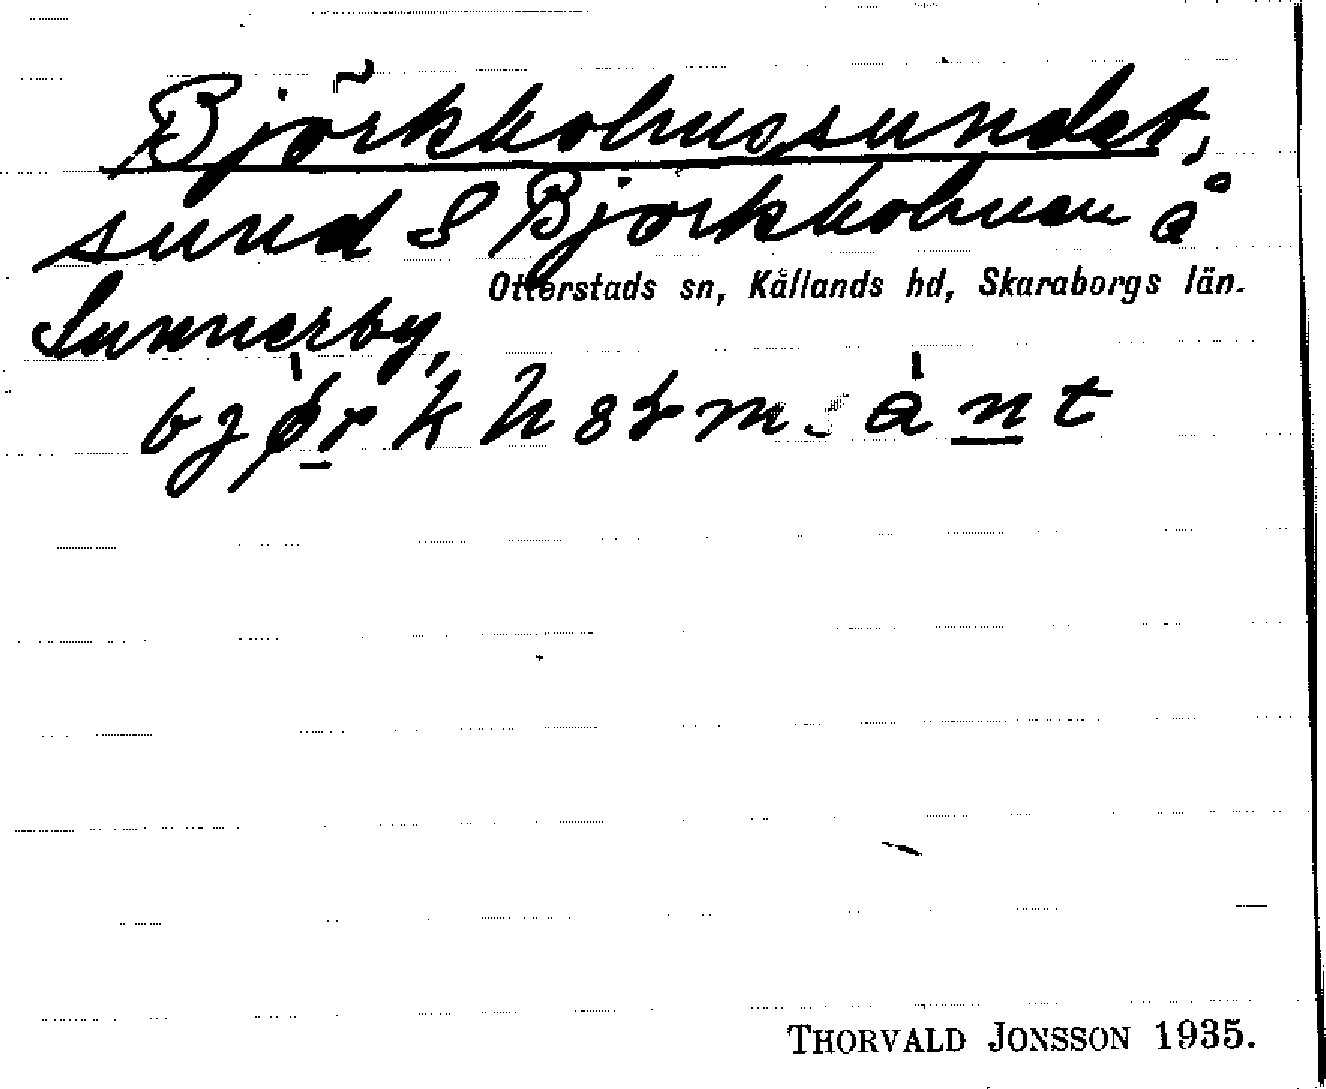 Björkholmssundet,
sund S Björkholmen å
Otterstads sn, Kållands hd, Skaraborgs län.
Sunnerby,
THORVALD JONSSON 1935.